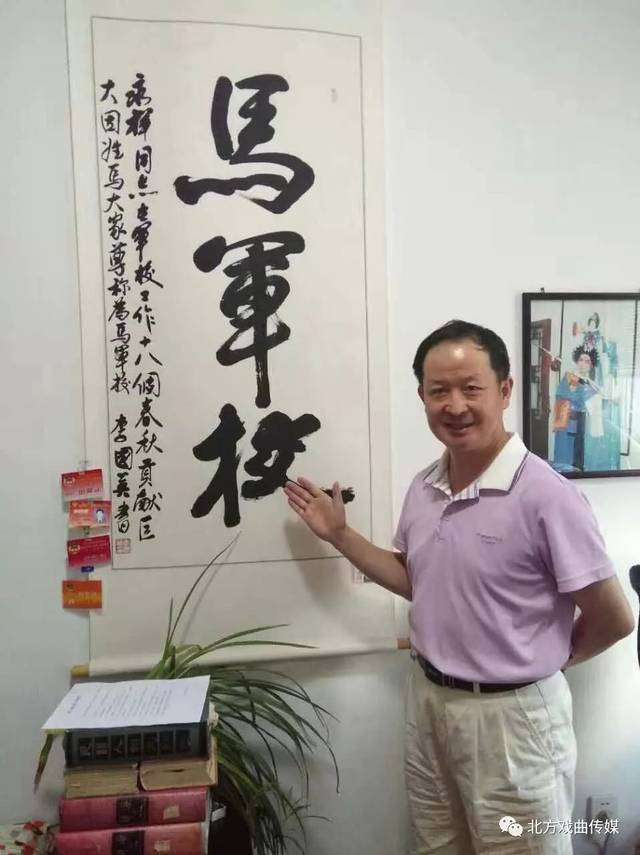 馬軍校
永同志在軍校工作十八個春秋貢献巨
大因姓馬大家尊称為馬軍校 李國英書
北方戏曲传媒